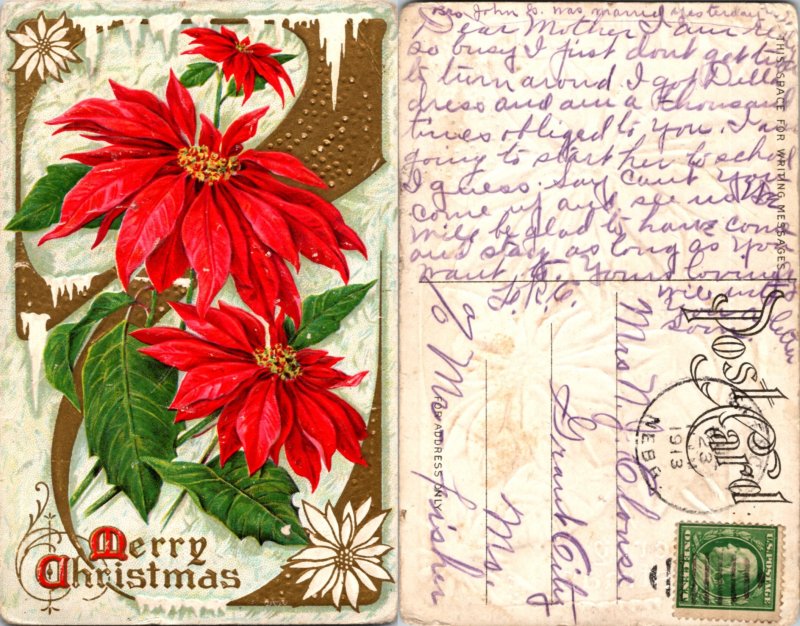 Merry
Christmas
Mrs. John S. was married yesterday
Dear Mother I am
so busy I just dont get time
to turn around. I got Dells
dress and am a thousand
times obliged to you. I am
going to start her to school
I guess. Say can't you
come up and see us
will be glad to have come
and stay as long as you
want to. Yours lovingly
Will write letter
Soon
THIS SPACE FOR WRITING MESSAGES
Post Card
FOR ADDRESS ONLY
Mrs N. J. Clouse
Grant City
Mo.
c/o Mr. Fisher
NEBR
23
1913
U.S. POSTAGE
ONE CENT